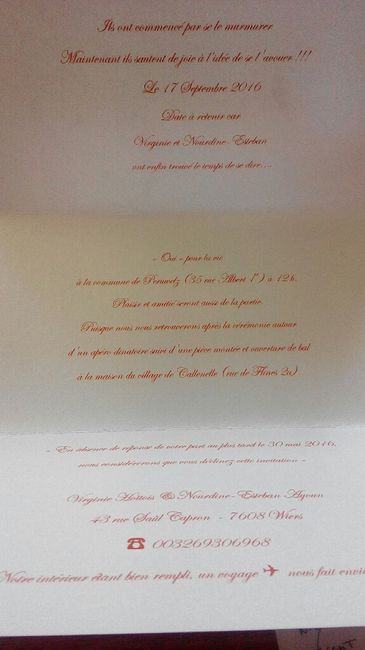 Ils ont commencé par se le murmurer
Maintenant ils sautent de joie à l'idée de se l'avouer !!!
Le 17 Septembre 2016
Date à retenir car
Virginie et Nourdine-Esteban
ont enfin trouvé le temps de se dire...
- Oui - pour la vie
à la commune de Peruwelz (35 rue Albert 1er) à 12h.
Plaisir et amitié seront aussi de la partie.
Puisque nous nous retrouverons après la cérémonie autour
d'un apéro dinatoire suivi d'une pièce montée et ouverture de bal
à la maison du village de Callenelle (rue de Flines 2a)
- En absence de reponse de votre part au plus tard le 30 mai 2016,
nous considérerons que vous déclinez cette invitation -
Virginie Hottois & Nourdine-Esteban Ayoun
43 rue Saül Capron - 7608 Wiers
☎ 003269306968
Notre intérieur étant bien rempli, un voyage ✈ nous fait envi